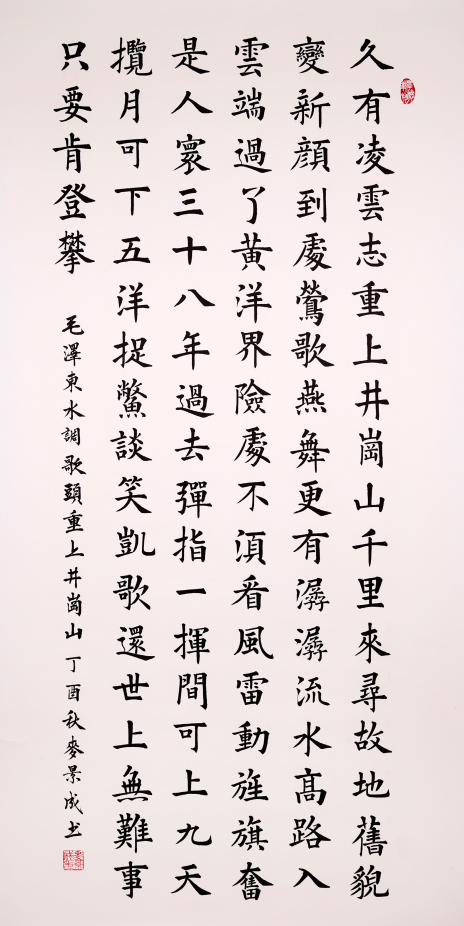 久有凌雲志重上井崗山千里來尋故地舊貌
變新顔到處鶯歌燕舞更有潺潺流水髙路入
雲端過了黃洋界險處不湏看風雷動旌旗奮
是人寰三十八年過去彈指一揮間可上九天
攬月可下五洋捉鱉談笑凱歌還世上無難事
只要肯登攀
毛澤東水調歌頭重上井崗山 丁酉秋麥景成书